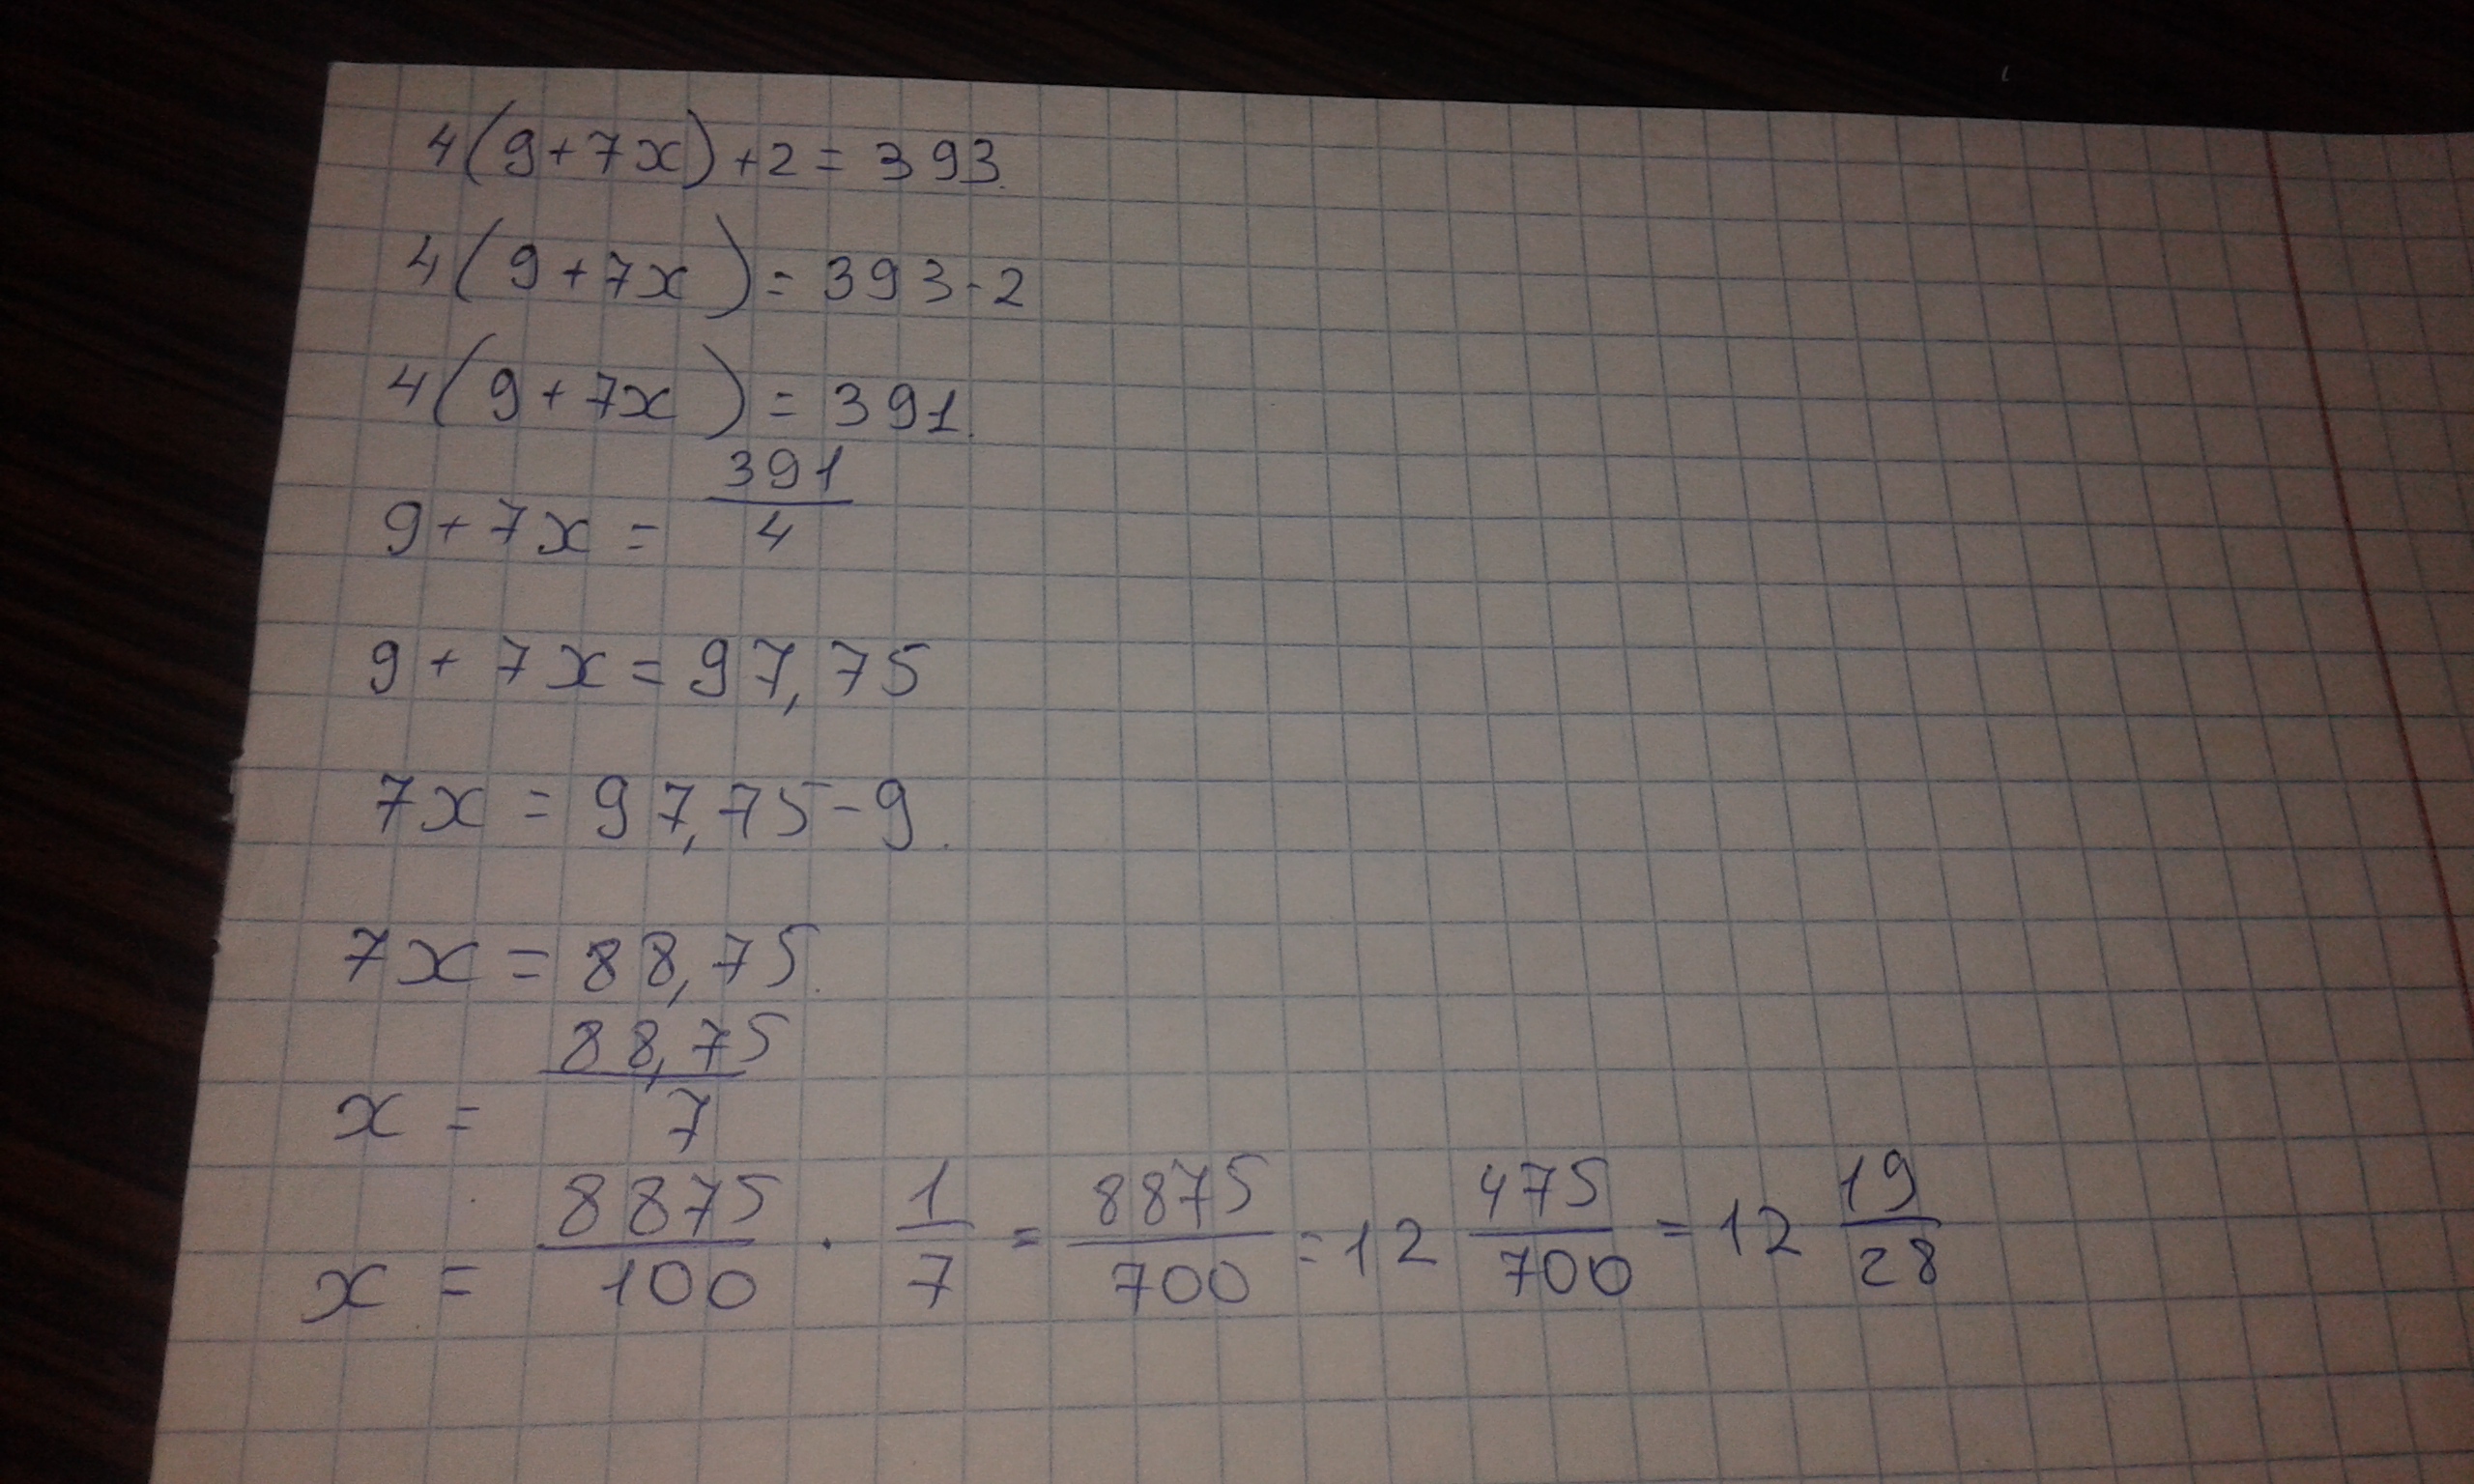 4(9+7x)+2=393.
4(9+7x)=393-2
4(9+7x)=391.
9+7x=391/4
9+7x=97,75
7x=97,75-9.
7x=88,75.
x=88,75/7
x=8875/100·1/7=8875/700=12 475/700=12 19/28